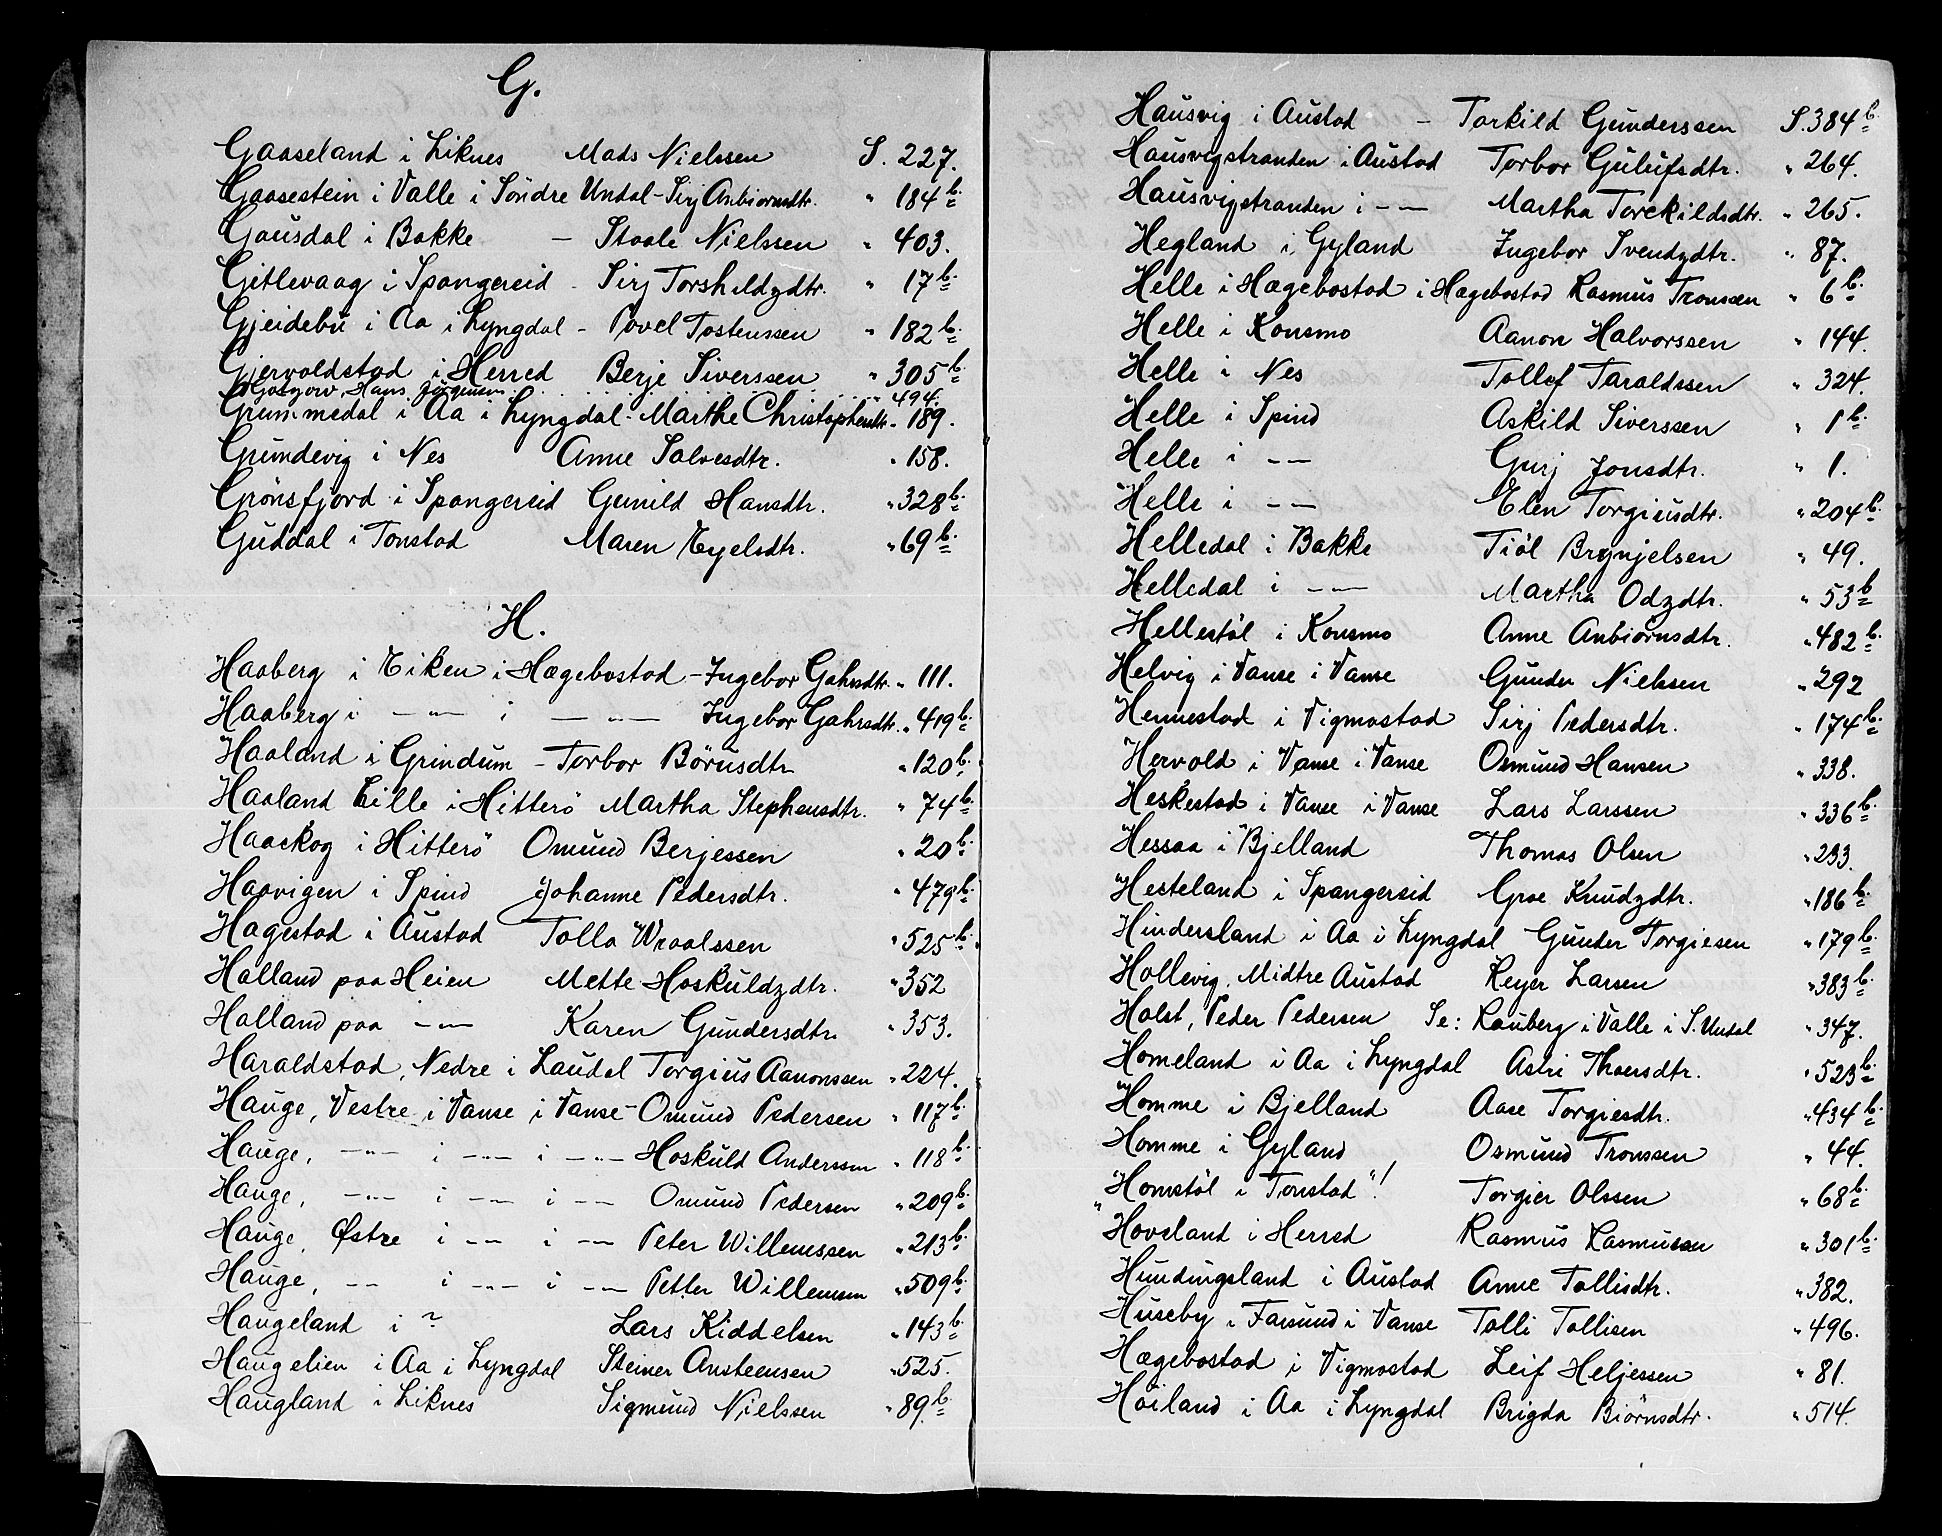 G.
Gaaseland i Liknes Mads Nielssen S. 227.
Gaasestein i Valle i Söndre Undal - Sirj Anbiornsdtr. " 184 b.
Gausdal i Bakke - Staale Nielssen " 403.
Gitlevaag i Spangereid - Sirj Torshildzdtr. " 17 b.
Gjeidebu i Aa i Lyngdal - Povel Tostenssen " 182 b.
Gjervoldstad i Herred Berje Siverssen " 305 b.
Hans Jörgensen 494.
Grummedal i Aa i Lyngdal - Marthe Christophersdtr. " 189.
Grundevig i Nes Anne Salvesdtr. " 158.
Grönsfjord i Spangereid Gunild Hansdtr. " 328 b.
Guddal i Tonstad Maren Eyelsdtr. " 69 b.
H.
Haaberg i Eiken i Hægebostad - Ingebor Gahrsdtr. " 111.
Haaberg i - " - i - " - Ingebor Gahrsdtr. " 419 b.
Haaland i Grindum - Torbor Börnsdtr " 120 b.
Haaland Lille i Hitterö Martha Stephensdtr. " 74 b.
Haaskog i Hitterö Omund Berjessen " 20 b.
Haavigen i Spind Johanne Pedersdtr. " 479 b.
Hagestad i Austad Tolla Wraalssen " 525 b.
Halland paa Heien Mette Hoskuldzdtr. " 352
Halland paa - " - Karen Gundersdtr. " 353.
Haraldstad, Nedre i Laudal Torgius Aanonssen " 224.
Hauge, Vestre i Vanse i Vanse - Omund Pedersen " 117 b.
Hauge, - " - i - " - i - " - Hoskuld Anderssen " 118 b.
Hauge, - " - i - " - i - " - Omund Pedersen " 209 b.
Hauge, Østre i - " - i - " - Peter Willemssen " 213 b.
Hauge, - " - i - " - i - " - Petter Willemsen " 509 b.
Haugeland i ? Lars Kiddelsen " 143 b.
Haugelien i Aa i Lyngdal Steiner Ansteensen " 525.
Haugland i Liknes Sigmund Nielssen " 89 b.
Hausvig i Austad - Torkild Gunderssen S. 384 b.
Hausvigstranden i Austad Torbor Gulufsdtr. " 264.
Hausvigstranden i - " - Martha Torekildsdtr. " 265.
Hegland i Gyland Ingebor Svendzdtr. " 87.
Helle i Hægebostad i Hægebostad Rasmus Tronssen " 6 b.
Helle i Konsmo Aanon Halvorssen " 144.
Helle i Nes Tollef Taraldssen " 324.
Helle i Spind Askild Siverssen " 1 b.
Helle i - " - Gurj Jonsdtr. " 1.
Helle i - " - Elen Torgiusdtr. " 204 b.
Helledal i Bakke Tiöl Brynjelsen " 49.
Helledal i - " - Martha Odzdtr. " 53 b
Hellestöl i Konsmo Anne Anbiornsdtr. " 482 b.
Helvig i Vanse i Vanse Gunder Nielssen " 292
Hennestad i Vigmostad Sirj Pedersdtr. " 174 b.
Hervold i Vanse i Vanse Osmund Hansen " 338.
Heskestad i Vanse i Vanse Lars Larssen " 336 b.
Hessaa i Bjelland Thomas Olsen " 233.
Hesteland i Spangereid Groe Knudzdtr. " 186 b.
Hindersland i Aa i Lyngdal Gunder Torgiesen " 179 b.
Hollevig, Midtre Austad Reyer Larsen " 383 b.
Holst, Peder Pedersen Se: Rauberg i Valle i S. Undal " 347.
Homeland i Aa i Lyngdal Astri Thoersdtr. " 523 b.
Homme i Bjelland Aase Torgiesdtr. " 434 b.
Homme i Gyland Osmund Tronssen " 44.
"Homstöl i Tonstad"! Torgier Olssen " 68 b.
Hovsland i Herred Rasmus Rasmussen " 301 b.
Hundingsland i Austad Anne Tollisdtr. " 382.
Huseby i Farsund i Vanse Tolli Tollisen " 496.
Hægebostad i Vigmostad Leif Heljessen " 81.
Höiland i Aa i Lyngdal Brigda Biörnsdtr. " 514.